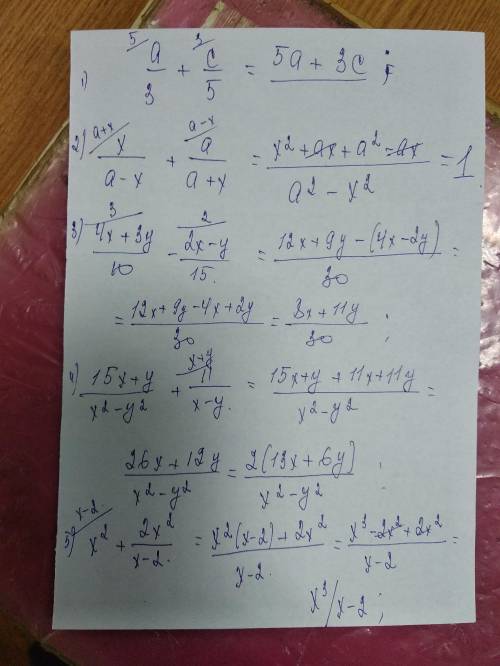 1) ⁵⁄ a/3 + ³⁄ c/5 = 5a + 3c ;
2) ᵃ⁺ˣ⁄ x/(a-x) + ᵃ⁻ˣ⁄ a/(a+x) = (x² + ax + a² - ax)/(a² - x²) = 1.
3) ³⁄ (4x+3y)/10 - ²⁄ (2x-y)/15. = (12x+9y-(4x-2y))/30 =
= (12x+9y-4x+2y)/30 = (8x+11y)/30 ;
4) (15x+y)/(x²-y²) + ˣ⁺ʸ⁄ 11/(x-y). = (15x+y+11x+11y)/(x²-y²) =
(26x+12y)/(x²-y²) = 2(13x+6y)/(x²-y²) ;
5) ˣ⁻²⁄ x² + 2x²/(x-2). = (x²(x-2)+2x²)/(x-2.) = (x³-2x²+2x²)/(x-2) =
x³/x-2 ;